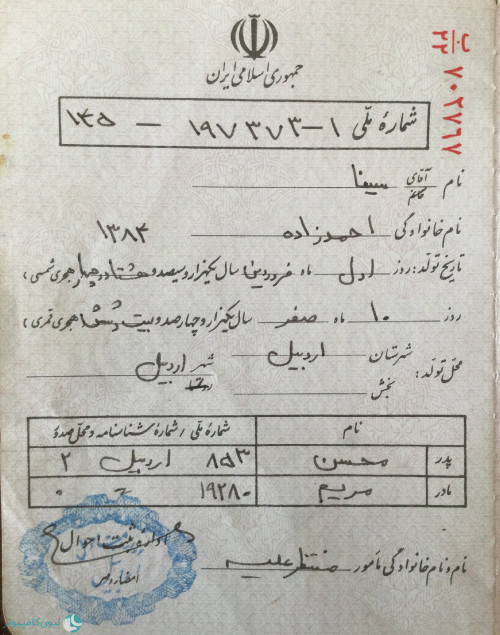 جمهوری اسلامی ایران
ل ۲۲ ۷۰۲۷۶۷
شمارهٔ ملّی ۱-۱۹۷۳۷۳ - ۱۴۵
نام آقای خانم سینا
نام خانوادگی احمدزاده ۱۳۸۴
تاریخ تولد: روز اول ماه فروردین سال یکهزار و سیصد و هشتاد و چهار هجری شمسی
روز ۱۰ ماه صفر سال یکهزار و چهارصد و بیست و شش هجری قمری
محل تولد: شهرستان اردبیل شهر اردبیل
بخش
نام شماره ملی / شماره شناسنامه و محل صدور
پدر محسن ۸۵۳ اردبیل ۲
مادر مریم ۱۹۲۸۰
نام و نام خانوادگی مأمور
اداره ثبت احوال
لیون کامپیوتر